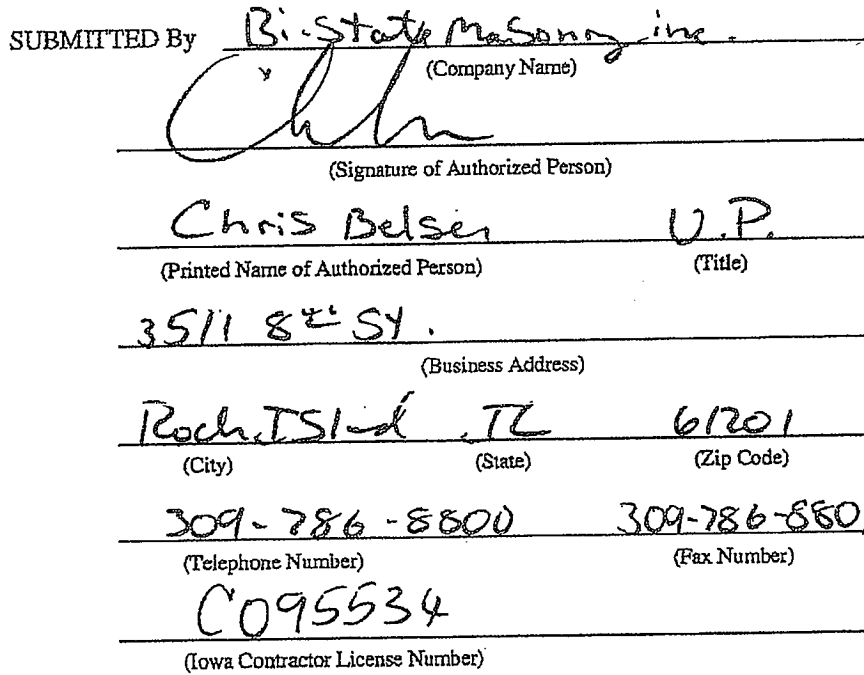 SUBMITTED By Bi-State Masonry inc.
(Company Name)
(Signature of Authorized Person)
Chris Belser V.P.
(Printed Name of Authorized Person) (Title)
3511 8th St.
(Business Address)
Rock Island, IL 61201
(City) (State) (Zip Code)
309-786-8800 309-786-880
(Telephone Number) (Fax Number)
C095534
(Iowa Contractor License Number)